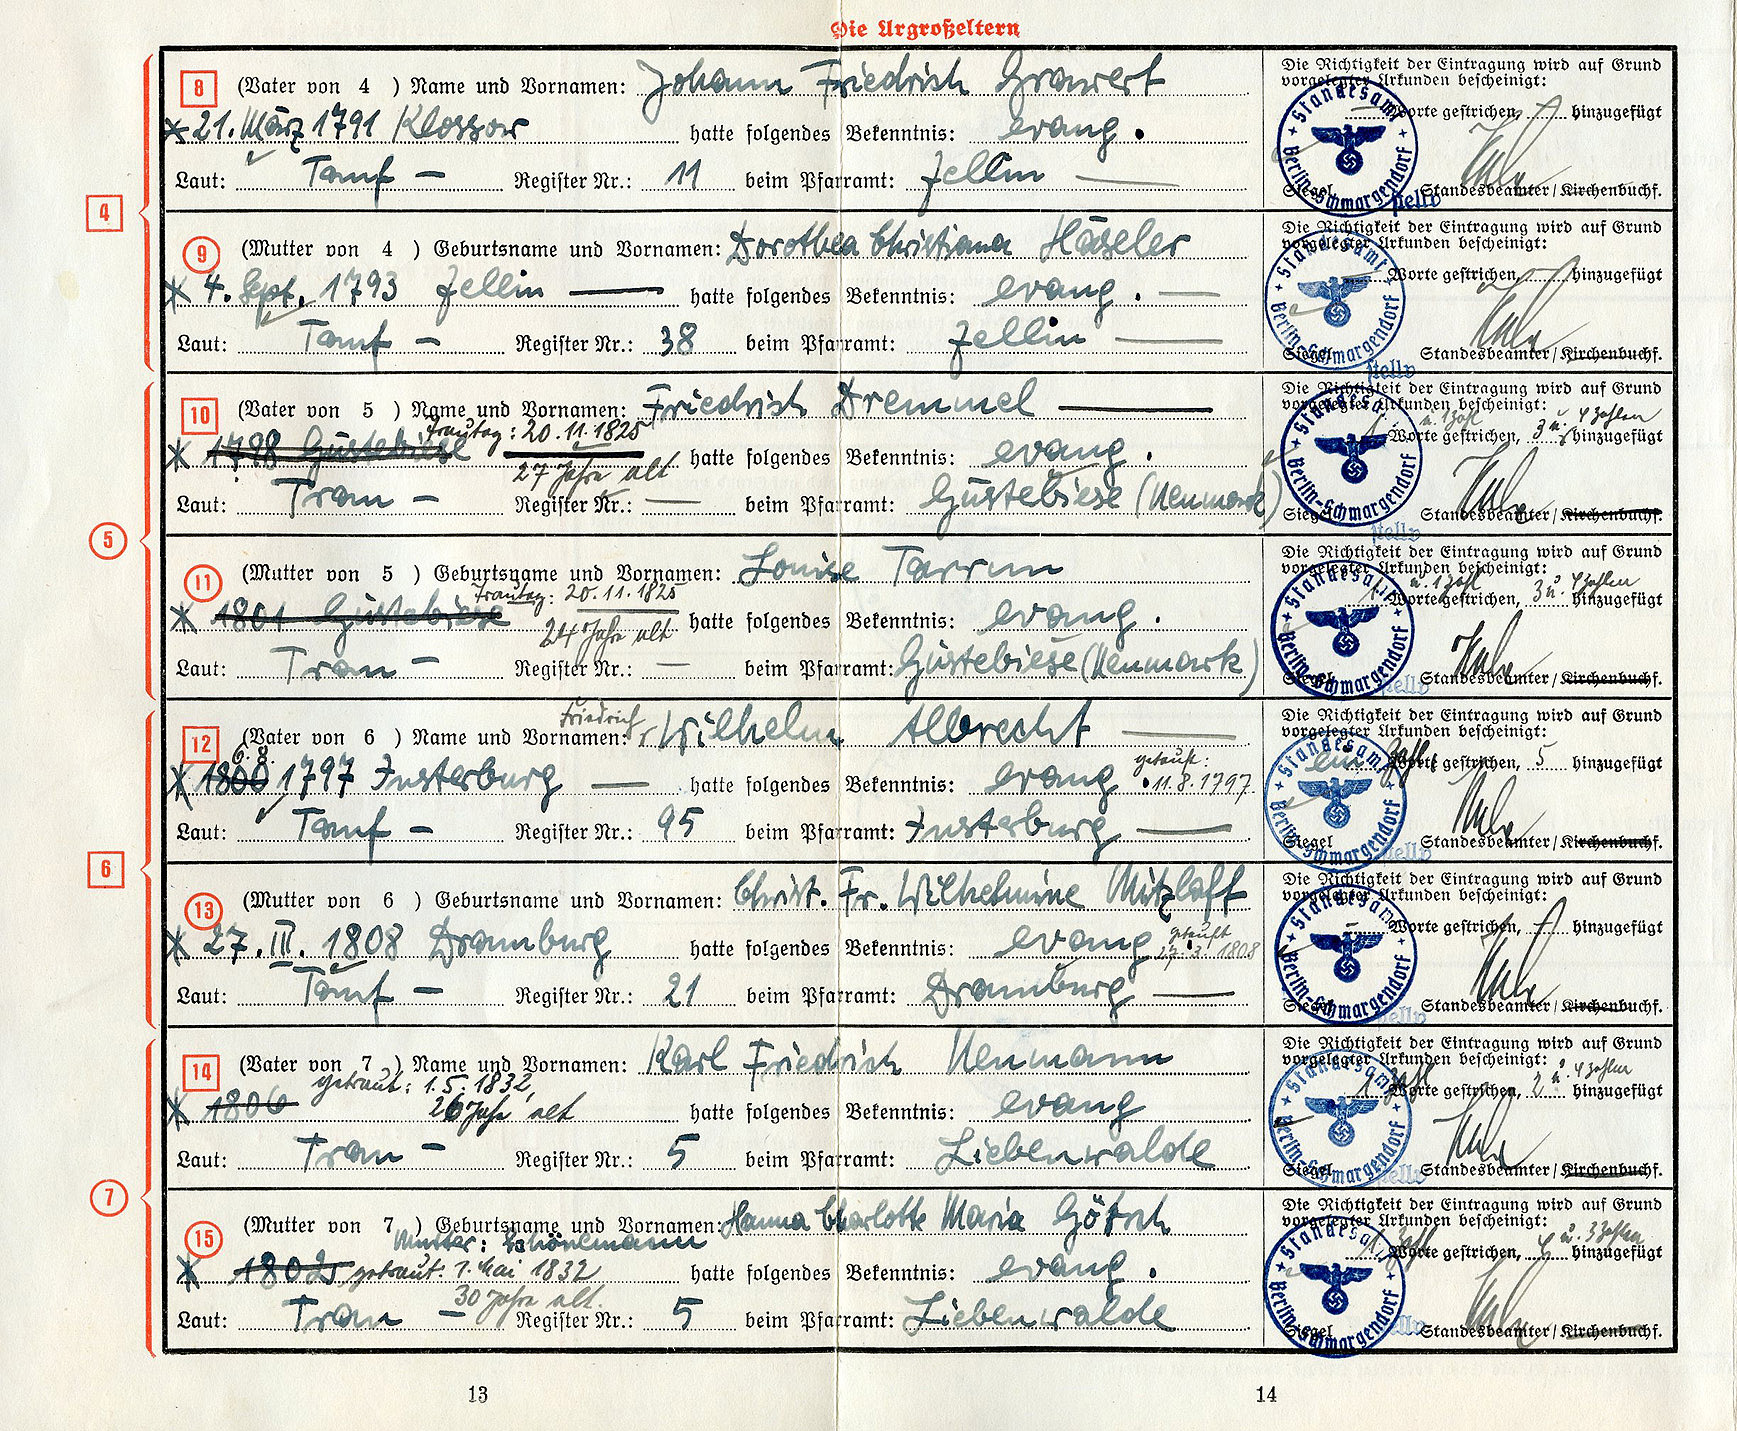 Die Urgroßeltern
8 (Vater von 4 ) Name und Vornamen: Johann Friedrich Grawert
* 21. März 1791 Klossow hatte folgendes Bekenntnis: evang.
Laut: Tauf – Register Nr.: 11 beim Pfarramt: Zellin —
Die Richtigkeit der Eintragung wird auf Grund
vorgelegter Urkunden bescheinigt:
— Worte gestrichen, — hinzugefügt
Standesamt Berlin-Schmargendorf
Siegel Standesbeamter / Kirchenbuchf.
stellv
4
9 (Mutter von 4 ) Geburtsname und Vornamen: Dorothea Christiana Häseler
* 4. Sept. 1793 Zellin — hatte folgendes Bekenntnis: evang. —
Laut: Tauf – Register Nr.: 38 beim Pfarramt: Zellin —
Die Richtigkeit der Eintragung wird auf Grund
vorgelegter Urkunden bescheinigt:
— Worte gestrichen, — hinzugefügt
Standesamt Berlin-Schmargendorf
Siegel Standesbeamter / Kirchenbuchf.
stellv
10 (Vater von 5 ) Name und Vornamen: Friedrich Dremmel —
Trautag: 20.11.1825
* 1798 Güstebiese hatte folgendes Bekenntnis: evang.
27 Jahre alt
Laut: Trau – Register Nr.: — beim Pfarramt: Güstebiese (Neumark)
Die Richtigkeit der Eintragung wird auf Grund
vorgelegter Urkunden bescheinigt:
1 u. 1 Zahl Worte gestrichen, 3 u. 4 Zahlen hinzugefügt
Standesamt Berlin-Schmargendorf
Siegel Standesbeamter / Kirchenbuchf.
stellv
5
11 (Mutter von 5 ) Geburtsname und Vornamen: Louise Tarrun
Trautag: 20.11.1825
* 1801 Güstebiese hatte folgendes Bekenntnis: evang.
24 Jahre alt
Laut: Trau – Register Nr.: — beim Pfarramt: Güstebiese (Neumark)
Die Richtigkeit der Eintragung wird auf Grund
vorgelegter Urkunden bescheinigt:
1 u. 1 Zahl Worte gestrichen, 3 u. 4 Zahlen hinzugefügt
Standesamt Berlin-Schmargendorf
Siegel Standesbeamter / Kirchenbuchf.
stellv
Friedrich
12 (Vater von 6 ) Name und Vornamen: Wilhelm Albrecht —
6. 8. getauft:
* 1800 1797 Insterburg — hatte folgendes Bekenntnis: evang. 11.8.1797.
Laut: Tauf – Register Nr.: 95 beim Pfarramt: Insterburg —
Die Richtigkeit der Eintragung wird auf Grund
vorgelegter Urkunden bescheinigt:
eine Zahl Worte gestrichen, 5 hinzugefügt
Standesamt Berlin-Schmargendorf
Siegel Standesbeamter / Kirchenbuchf.
stellv
6
13 (Mutter von 6 ) Geburtsname und Vornamen: Christ. Fr. Wilhelmine Mitzlaff
getauft
* 27. III. 1808 Dramburg hatte folgendes Bekenntnis: evang. 27.3.1808
Laut: Tauf – Register Nr.: 21 beim Pfarramt: Dramburg —
Die Richtigkeit der Eintragung wird auf Grund
vorgelegter Urkunden bescheinigt:
— Worte gestrichen, — hinzugefügt
Standesamt Berlin-Schmargendorf
Siegel Standesbeamter / Kirchenbuchf.
stellv
14 (Vater von 7 ) Name und Vornamen: Karl Friedrich Neumann
getraut: 1.5.1832,
* 1806 26 Jahre alt hatte folgendes Bekenntnis: evang
Laut: Trau – Register Nr.: 5 beim Pfarramt: Liebenwalde
Die Richtigkeit der Eintragung wird auf Grund
vorgelegter Urkunden bescheinigt:
1 Zahl Worte gestrichen, 2 u. 4 Zahlen hinzugefügt
Standesamt Berlin-Schmargendorf
Siegel Standesbeamter / Kirchenbuchf.
stellv
7
15 (Mutter von 7 ) Geburtsname und Vornamen: Hanna Charlotte Maria Götsch
Mutter: Schönemann
* 1802 getraut: 1. Mai 1832 hatte folgendes Bekenntnis: evang.
30 Jahre alt.
Laut: Trau – Register Nr.: 5 beim Pfarramt: Liebenwalde
Die Richtigkeit der Eintragung wird auf Grund
vorgelegter Urkunden bescheinigt:
1 Zahl Worte gestrichen, u. 3 Zahlen hinzugefügt
Standesamt Berlin-Schmargendorf
Siegel Standesbeamter / Kirchenbuchf.
stellv
13
14